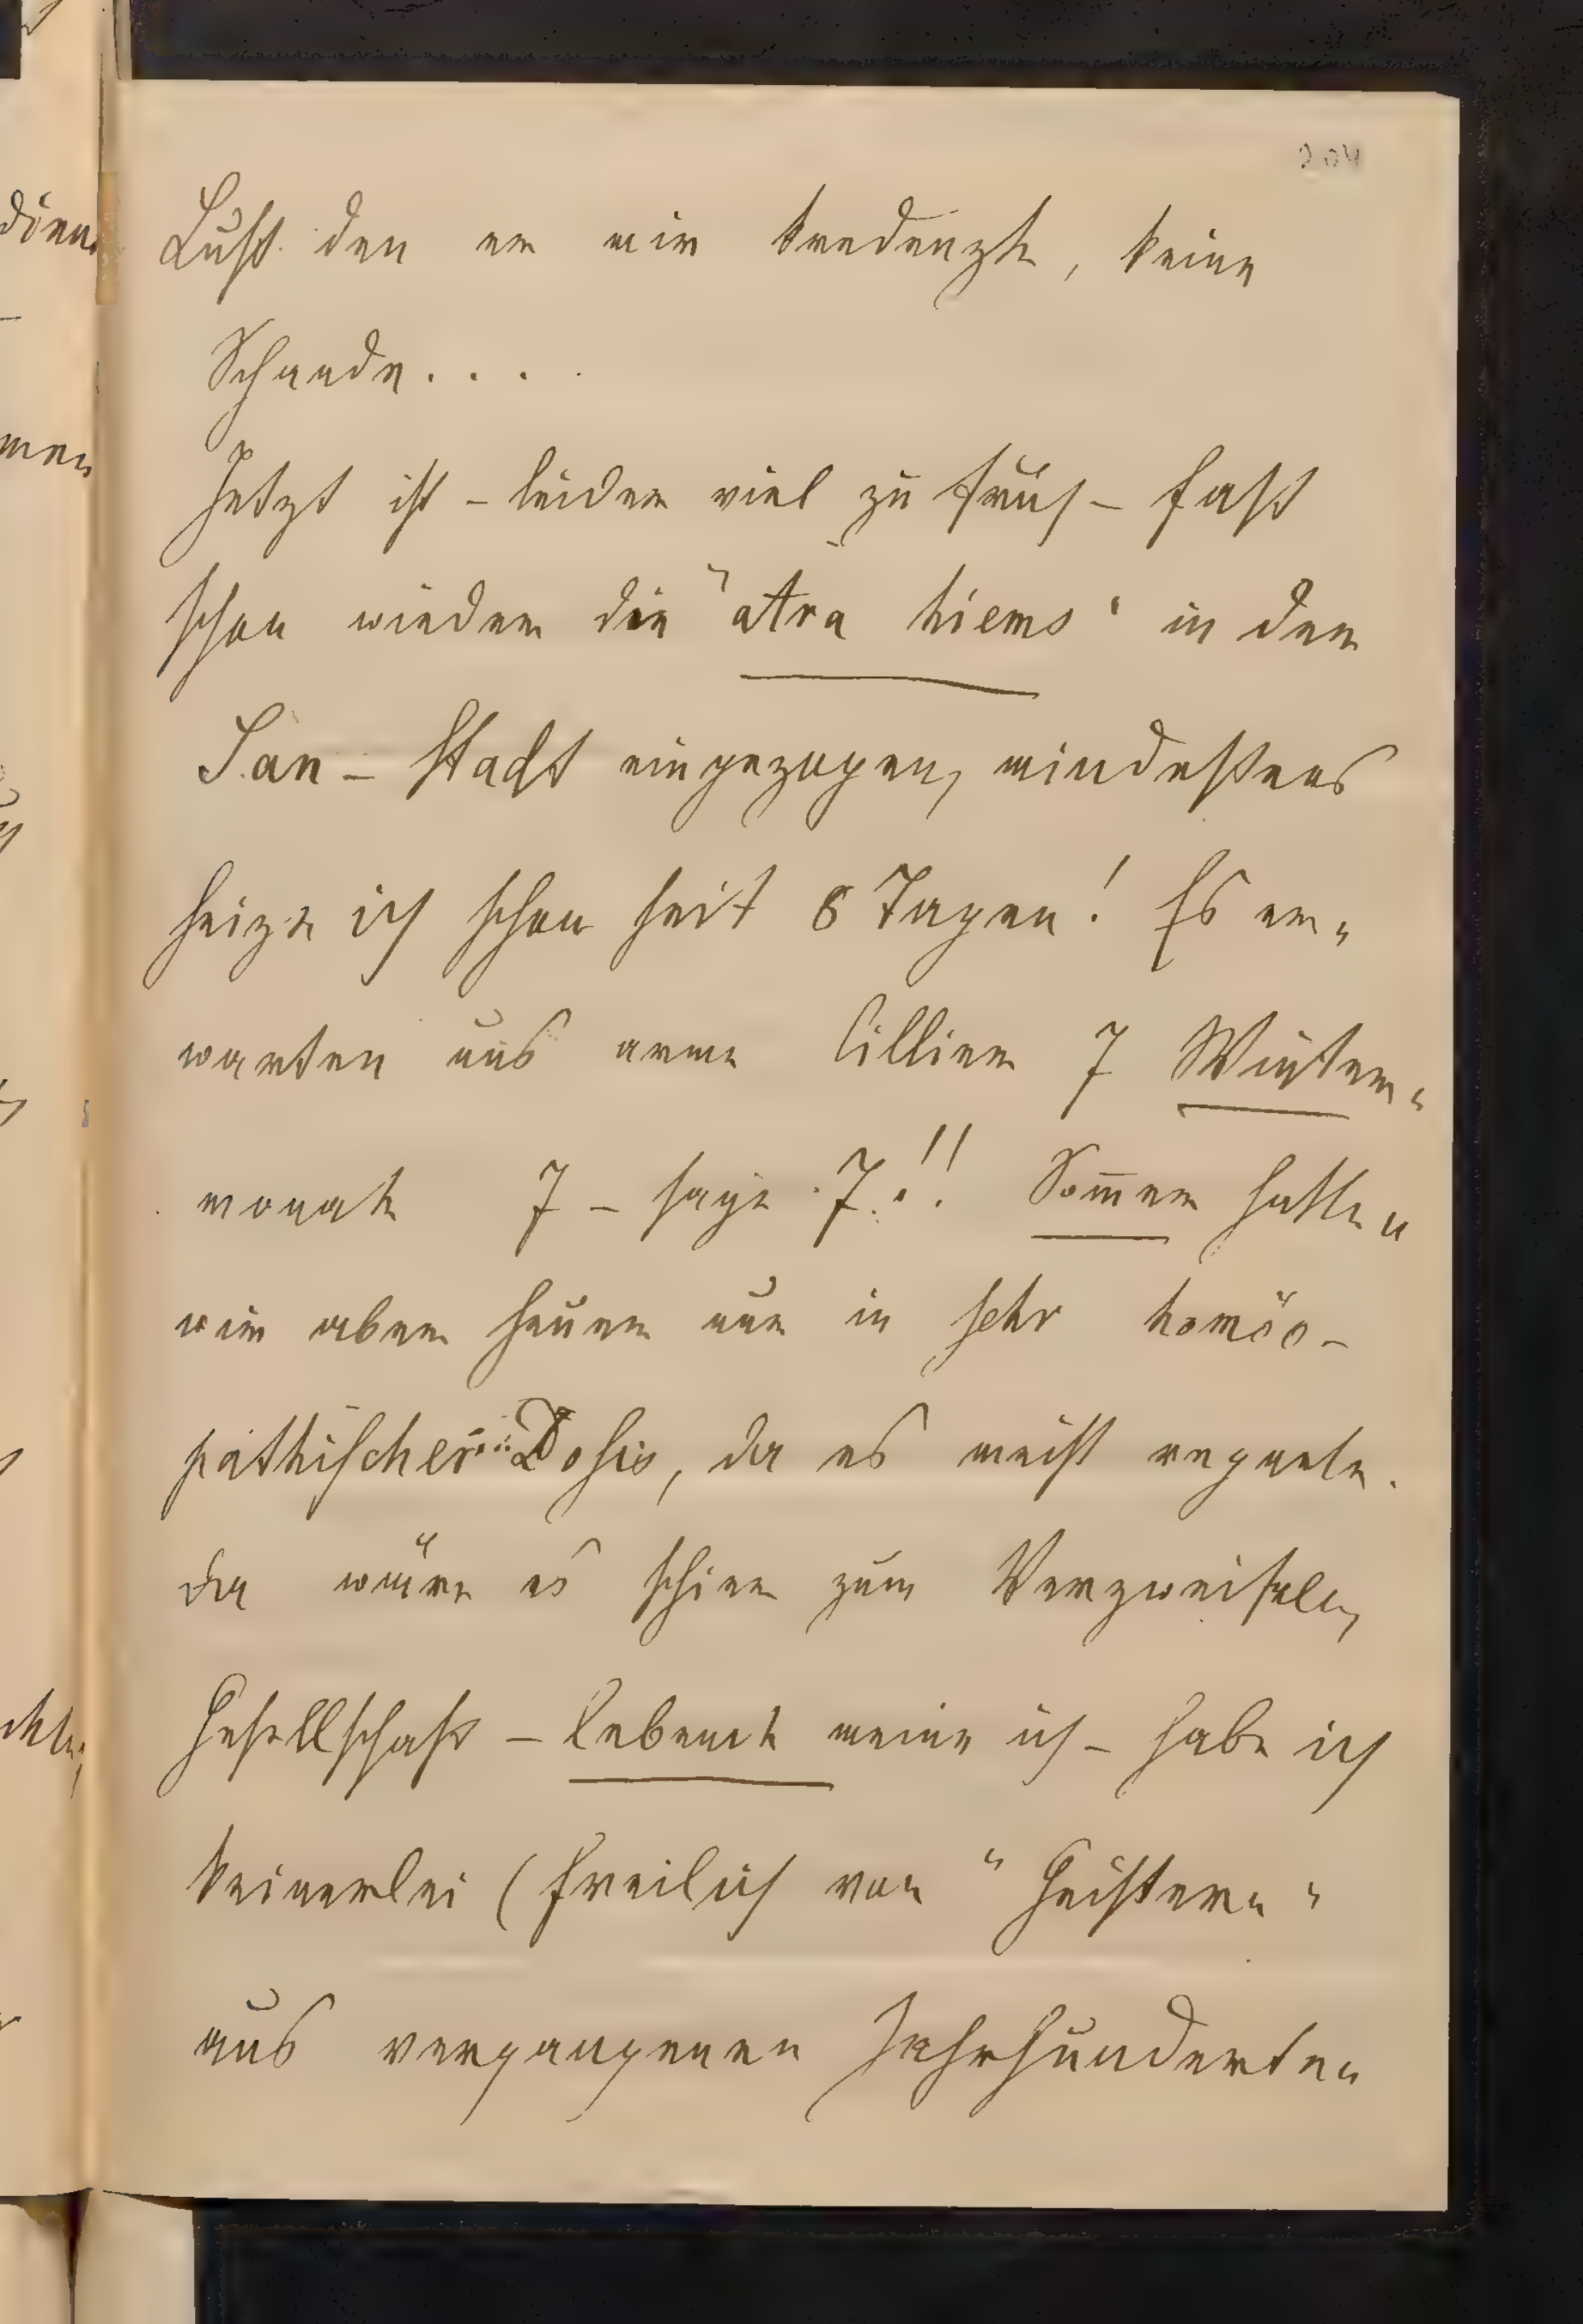 204
Lust den er mir kredenzte, keine
Schande. . . .
Jetzt ist – leider viel zu früh – fast
schon wieder die "atra hiems" in der
San – Stadt eingezogen, mindestens
heize ich schon seit 8 Tagen! Es er„
warten uns arme Cillier 7 Winter„
monate 7 – sage 7!! Som̅er hatten
wir aber heuer nur in sehr homöo–
pathischer Dosis, da es meist regnete.
da wäre es schier zum Verzweifeln,
Gesellschaft – lebende meine ich – habe ich
keinerlei (freilich von "Geistern"
aus vergangenen Jahrhunderten